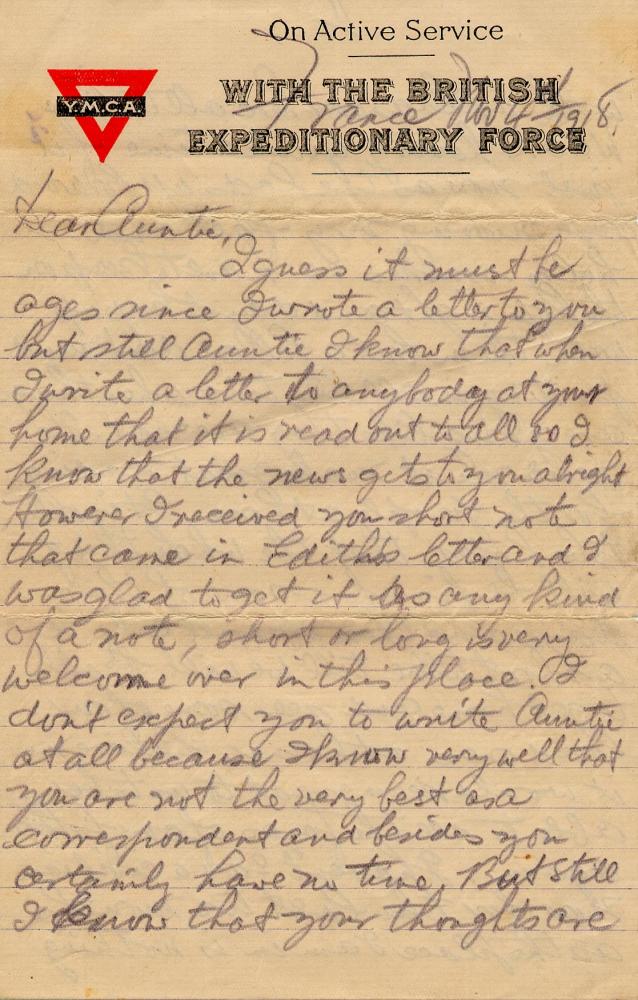 On Active Service
Y.M.C.A.
WITH THE BRITISH
EXPEDITIONARY FORCE
France Nov 4/1918,
Dear Auntie,
I guess it must be
ages since I wrote a letter to you
but still Auntie I know that when
I write a letter to anybody at your
home that it is read out to all so I
know that the news gets to you alright
However I received you short note
that came in Edith's letter and I
was glad to get it as any kind
of a note, short or long is very
welcome over in this place. I
don't expect you to write Auntie
at all because I know very well that
you are not the very best as a
correspondent and besides you
certainly have no time. But still
I know that your thoughts are